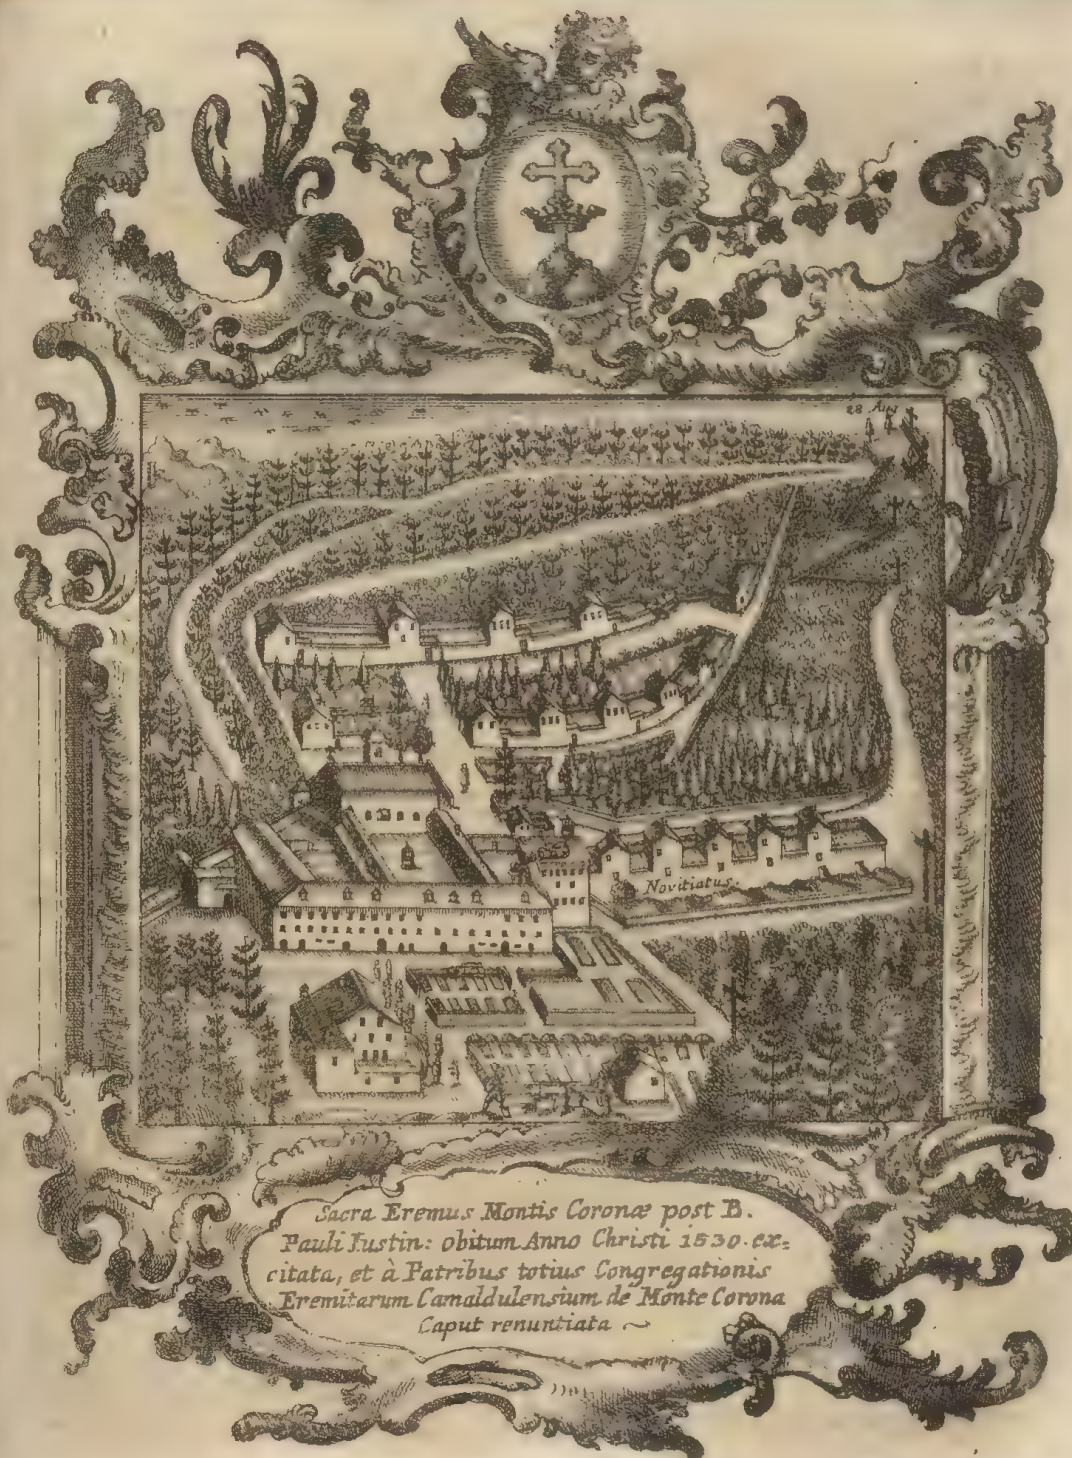 28 Aug
Novitiatus.
Sacra Eremus Montis Coronæ post B.
Pauli Iustin: obitum Anno Christi 1530. ex=
citata, et à Patribus totius Congregationis
Eremitarum Camaldulensium de Monte Corona
Caput renuntiata ~